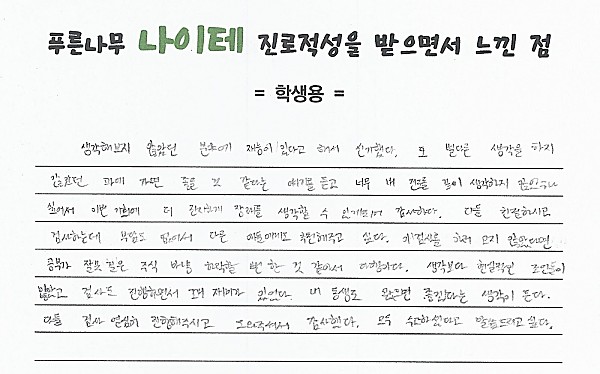 푸른나무 나이테 진로적성을 받으면서 느낀 점
= 학생용 =
생각해보지 않았던 분야에 재능이 있다고 해서 신기했다. 또 별다른 생각을 하지
않았던 과에 가면 좋을 것 같다는 얘기를 듣고 너무 내 진로를 깊이 생각하지 않았구나
싶어서 이번 기회에 더 진지하게 장래를 생각할 수 있게되어 감사하다. 다들 친절하시고
검사하는데 부담도 없어서 다른 애들에게도 추천해주고 싶다. 이 검사를 하러 오지 않았다면
공부가 잘못 같은 주식 바닥 하락할 뻔 한 것 같아서 다행이다. 생각보다 현실적인 조언들이
많았고 검사도 진행하면서 재미가 있었다. 내 동생도 왔으면 좋겠다는 생각이 든다.
다들 검사 열심히 진행해주시고 도와주셔서 감사했다. 모두 수고하셨다고 말씀드리고 싶다.